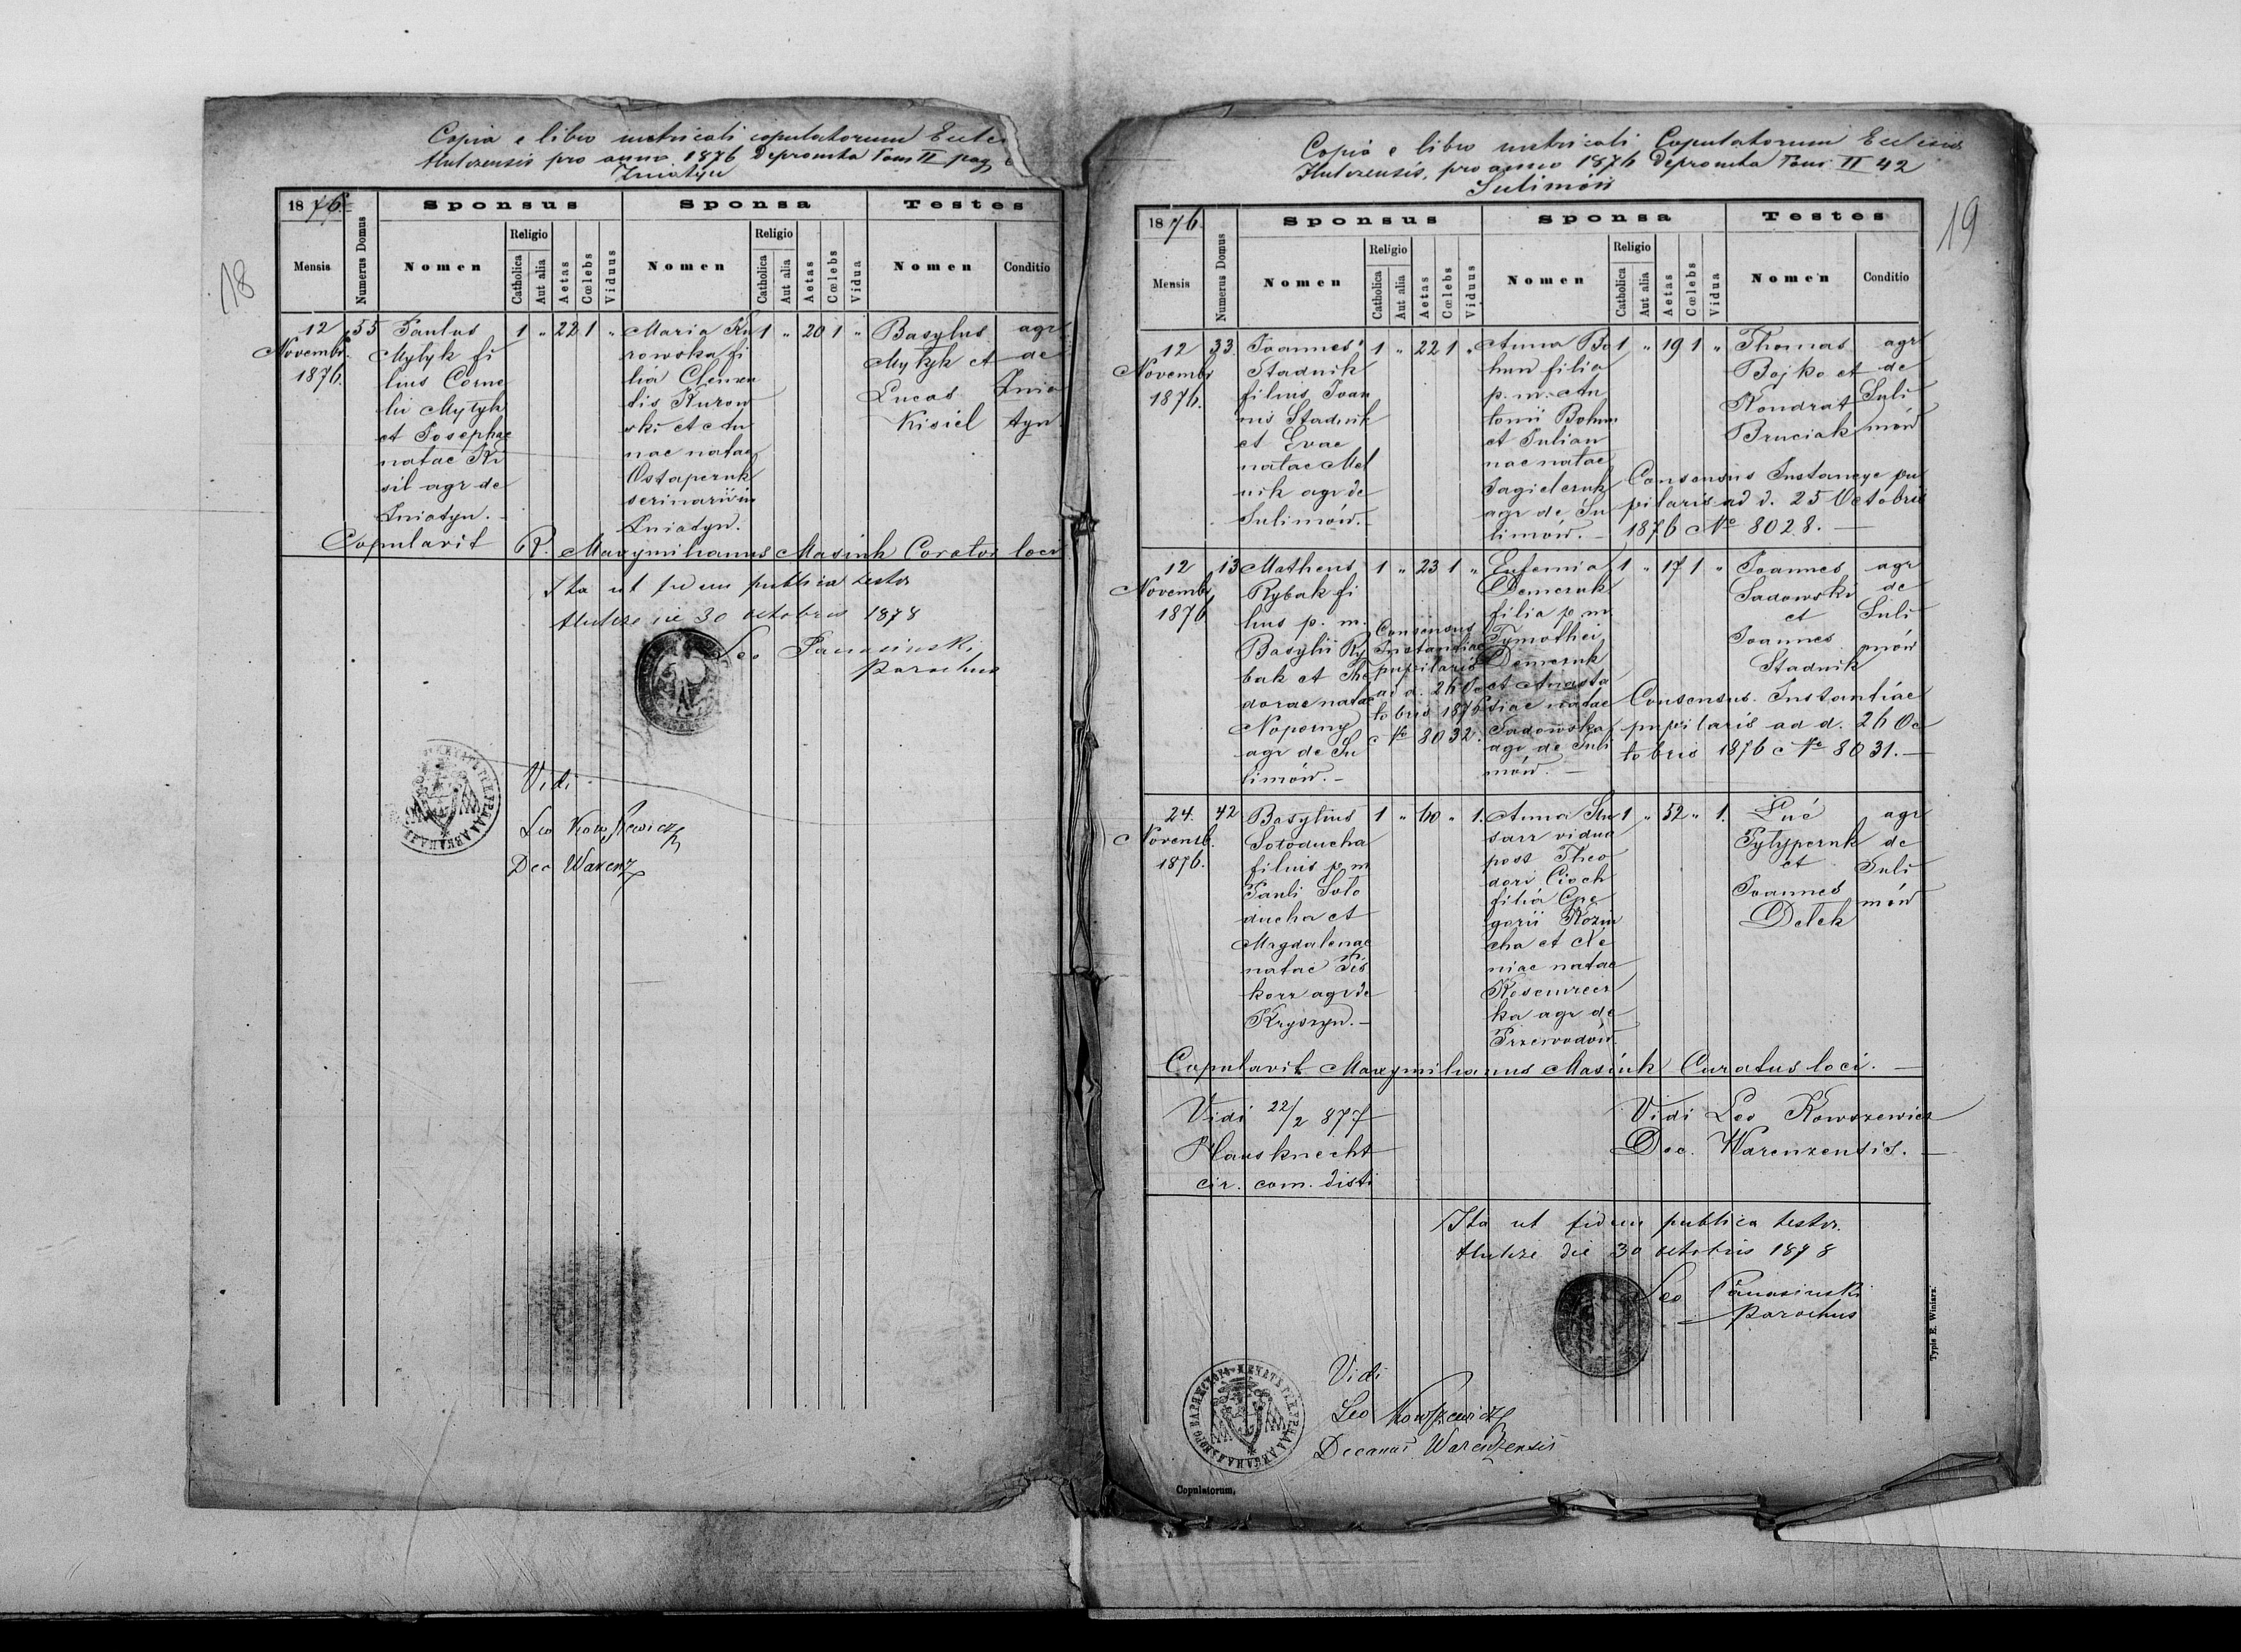 Copia e libro metricali copulatorum Eccle
Hulczensis pro anno 1876 depromta Tom II pag
Żniatyn
18
1876.
Mensis
Numerus Domus
Sponsus
Nomen
Religio
Catholica
Aut alia
Aetas
Cœlebs
Viduus
Sponsa
Nomen
Religio
Catholica
Aut alia
Aetas
Cœlebs
Vidua
Testes
Nomen
Conditio
12
Novembr.
1876.
55
Paulus
Mytyk fi
lius Corne
lii Mytyk
et Josephae
natae Ki
sil agr de
Żniatyn.
1 „ 22 1 „
Maria Ku
rowska fi
lia Clemen
tis Kurow
ski et An
nae natae
Ostaperuk
Żniatyn.
1 „ 20 1 „
Basylus
Mytyk et
Lucas
Kisiel
agr
de
Żnia
tyn
Copulavit R. Maxymilianus Masiuk Corator loci
Ita ut fidem publica testor
Hulcze die 30 octobris 1878
Leo Panasinski
Parochus
Vidi
Leo Kowszewicz
Dec Warenz
Copia e libro metricali Copulatorum Ecclesiae
Hulczensis, pro anno 1876 depromta Tom II 42
Sulimów
19
1876.
Mensis
Numerus Domus
Sponsus
Nomen
Religio
Catholica
Aut alia
Aetas
Cœlebs
Viduus
Sponsa
Nomen
Religio
Catholica
Aut alia
Aetas
Cœlebs
Vidua
Testes
Nomen
Conditio
12
Novembr
1876.
33
Joannes
Stadnik
filius Joan
nis Stadnik
et Evae
natae Mel
nik agr de
Sulimów.
1 „ 22 1 „
Anna Bo
hun filia
p. m. An
tonii Bohun
et Julian
nae natae
agr de Su
limów.
1 „ 19 1 „
Thomas
Bojko et
Kondrat
Bruciak
agr
de
Suli
mów
Consensus Instancye pu
pilaris ad d. 25 Octobris
1876 No 8028.
12
Novembr
1876
13
Matheus
Rybak fi
lius p. m.
Basylii Ry
bak et The
dorae natae
agr de Su
limów.
1 „ 23 1 „
Consensus
Instantiae
pupilaris
ad d. 26 Oc
tobris 1876
c No 8032.
Eufemia
Demczuk
filia p m
Tymothei
Demczuk
et Anasta
siae natae
Sadowska
agr de Suli
mów.
1 „ 17 1 „
Joannes
Sadowski
et
Joannes
Stadnik
agr
de
Suli
mów
Consensus Instantiae
pupilaris ad d. 26 Oc
tobris 1876 c No 8031.
24.
Novemb.
1876.
42
Basylius
Sołoducha
filius p m
Pauli Soło
ducha et
Magdalenae
natae Pis
korz agr de
Kryszyn.
1 „ 60 „ 1.
Anna
vidua
post Theo
dori Cioch
filia Gre
gorii Koziu
cha et Xe
niae natae
ka agr de
Przewodów
1 „ 52 „ 1.
Luć
Pytyperuk
et
Joannes
Detek
agr
de
Suli
mów
Copulavit Maxymilianus Masiuk Curatus loci.
Vidi 22/2 877
Hausknecht
cir. com. disti
Vidi Leo Kowszewicz
Dec. Warenzensis.
Ita ut fidem publica testor.
Hulcze die 30 octobris 1878
Leo Panasinski
Parochus
Vidi
Leo Kowszewicz
Decanus Warenzensis
Copulatorum.
Typis E. Winiarz.